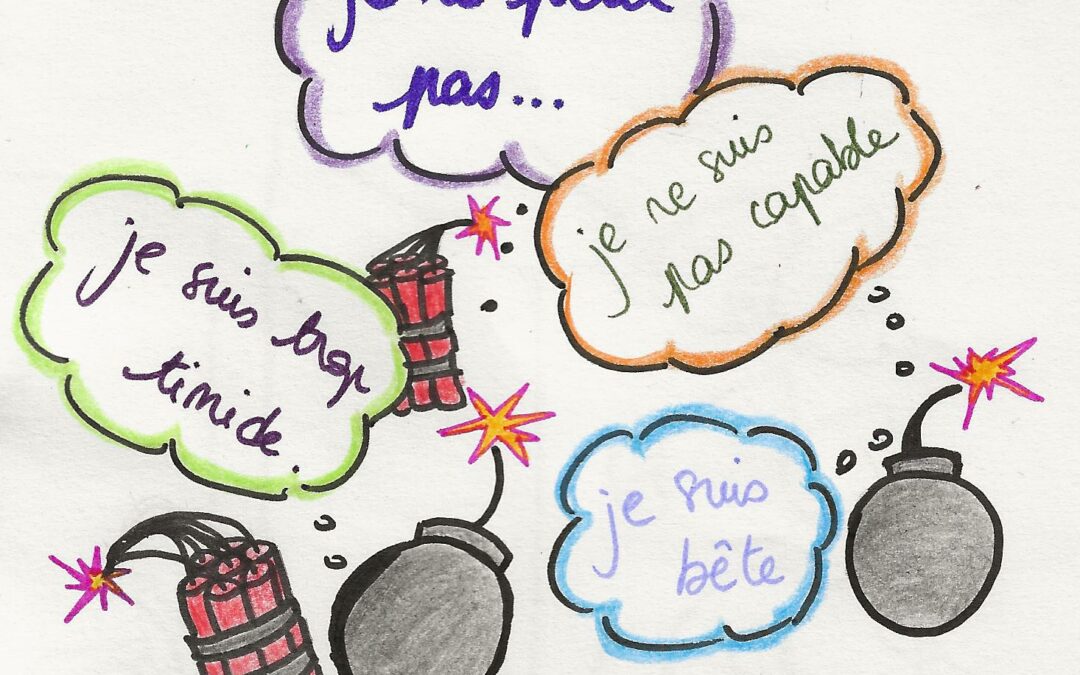 je ne peux
pas...
je ne suis
pas capable
je suis trop
timide.
je suis
bête